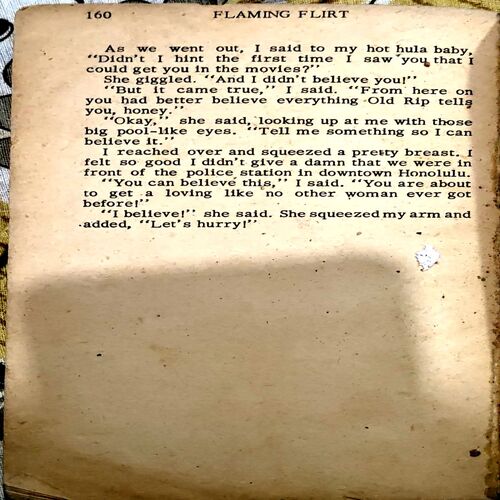 160 FLAMING FLIRT
As we went out, I said to my hot hula baby,
"Didn't I hint the first time I saw you that I
could get you in the movies?"
She giggled. "And I didn't believe you!"
"But it came true," I said. "From here on
you had better believe everything Old Rip tells
you, honey."
"Okay," she said, looking up at me with those
big pool-like eyes. "Tell me something so I can
believe it."
I reached over and squeezed a pretty breast. I
felt so good I didn't give a damn that we were in
front of the police station in downtown Honolulu.
"You can believe this," I said. "You are about
to get a loving like no other woman ever got
before!"
"I believe!" she said. She squeezed my arm and
added, "Let's hurry!"